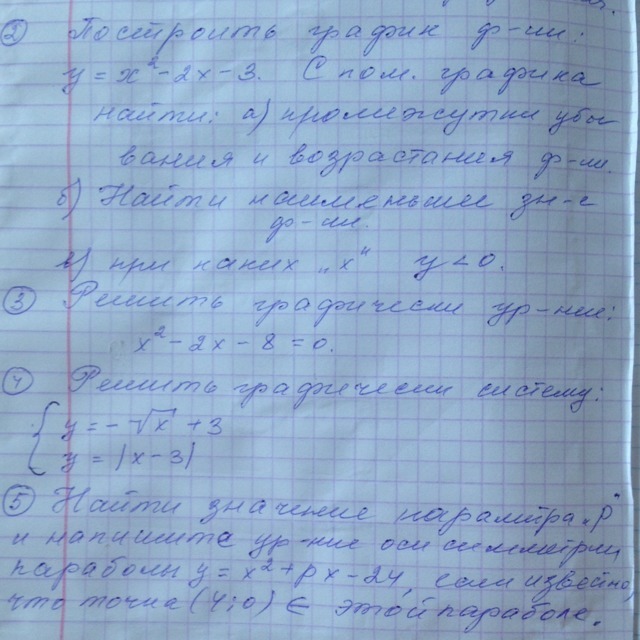 ② Построить график ф-ии:
y = x² - 2x - 3. С пом. графика
найти: а) промежутки убы
вания и возрастания ф-ии.
б) Найти наименьшее зн-е
ф-ии.
в) при каких "x" y < 0.
③ Решить графически ур-ние:
x² - 2x - 8 = 0.
④ Решить графически систему:
{ y = - √x + 3
y = |x - 3|
⑤ Найти значение параметра "p"
и напишите ур-ние оси симметрии
параболы y = x² + px - 24, если извейно,
что точка (4; 0) ∈ этой параболе.